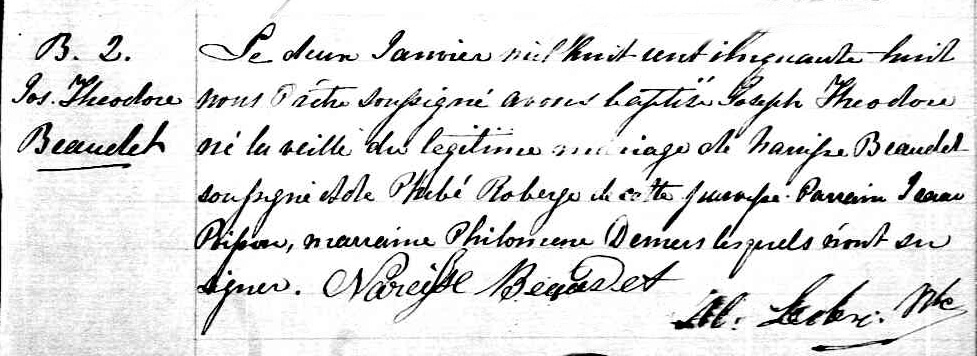 B. 2.
Jos. Theodore
Beaudet
Le deux Janvier mil huit cent cinquante huit
nous Prêtre soussigné avons baptisé Joseph Theodore
né la veille du légitime mariage de Narcisse Beaudet
soussigné et de Phebé Roberge de cette paroisse. Parrain Isaac
marraine Philomene Demers lesquels n'ont su
signer. Narcisse Beaudet
Leclerc. Ptre